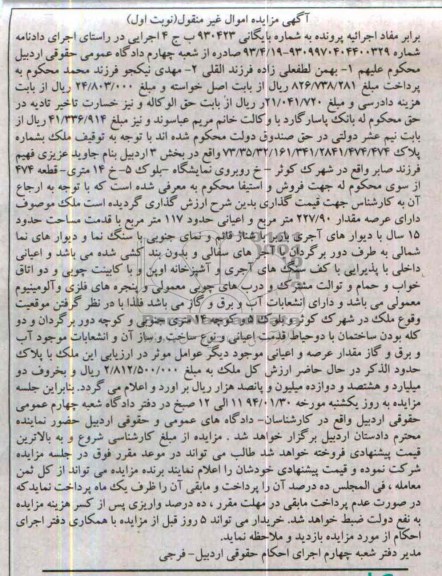 آگهی مزایده اموال غیر منقول(نوبت اول)
برابر مفاد اجرائیه پرونده به شماره بایگانی ۹۳۰۴۲۳ ب ج ۴ اجرایی در راستای اجرای دادنامه
شماره ۹۳۰۹۹۷۰۴۰۴۴۰۰۳۲۹-۹۳/۴/۱۹ صادره از شعبه چهارم دادگاه عمومی حقوقی اردبیل
محکوم علیهم ۱- بهمن لطفعلی زاده فرزند القلی ۲- مهدی نیکجو فرزند محمد محکوم به
پرداخت مبلغ ۸۲۶/۷۳۸/۲۸۱ ریال از بابت اصل خواسته و مبلغ ۲۴/۸۰۳/۰۰۰ ریال از بابت
هزینه دادرسی و مبلغ ۲۱/۰۴۱/۷۲۰ر ریال از بابت حق الوکاله و نیز خسارت تاخیر تادیه در
حق محکوم له بانک پاسارگارد با وکالت خانم مریم عباسوند و نیز مبلغ ۴۱/۳۳۶/۹۱۴ ریال از
بابت نیم عشر دولتی در حق صندوق دولت محکوم شده اند با توجه به توقیف ملک بشماره
پلاک ۷۳/۳۵/۳۲/۱۶۱/۳۴۱/۲۸۴۱/۴۷۴/۴۷۴ واقع در بخش ۳ اردبیل بنام جاوید عزیزی فهیم
فرزند صابر واقع در شهرک کوثر -خ روبروی نمایشگاه -بلوک ۵-خ ۱۴ متری- قطعه ۴۷۴
از سوی محکوم له جهت فروش و استیفا محکوم به معرفی شده است که با توجه به ارجاع
آن به کارشناس جهت قیمت گذاری بدین شرح ارزش گذاری گردیده است ملک موصوف
دارای عرصه مقدار ۲۲۷/۹۰ متر مربع و اعیانی حدود ۱۱۷ متر مربع با قدمت مساحت حدود
۱۵ سال با دیوار های آجری باربر با شناژ قائم و نمای جنوبی با سنگ نما و دیوار های نما
شمالی به طرف دور برگردان با آجر های سفالی و بدون بند کشی شده می باشد و اعیانی
داخلی با پذیرایی با کف سنگ های آجری و آشپزخانه اوپن و با کابینت چوبی و دو اتاق
خواب و حمام و توالت مشترک و درب های چوبی معمولی و پنجره های فلزی و آلومینیوم
معمولی می باشد و دارای انشعابات آب و برق و گاز می باشد فلذا با در نظر گرفتن موقعیت
وقوع ملک در شهرک کوثر و بلوک ۵ و کوچه ۱۴ متری جنوبی و کوچه دور برگردان و دو
کله بودن ساختمان با دوحیاط قدمت اعیانی و نوع ساخت و ساز آن و انشعابات موجود آب
و برق و گاز مقدار عرصه و اعیانی موجود دیگر عوامل موثر در ارزیابی این ملک با پلاک
حدود الذکر در حال حاضر ارزش کل ملک به مبلغ ۲/۸۱۲/۵۰۰/۰۰۰ ریال و بخروف دو
میلیارد و هشتصد و دوازده میلیون و پانصد هزار ریال بر اورد و اعلام می گردد. بنابراین جلسه
مزایده به روز یکشنبه مورخه ۹۴/۰۱/۳۰ ۱۱ الی ۱۲ صبح در دفتر دادگاه شعبه چهارم عمومی
حقوقی اردبیل واقع در کارشناسان- دادگاه های عمومی و حقوقی اردبیل حضور نماینده
محترم دادستان اردبیل برگزار خواهد شد . مزایده از مبلغ کارشناسی شروع و به بالاترین
قیمت پیشنهادی فروخته خواهد شد طالب می تواند در موعد مقرر فوق در جلسه مزایده
شرکت نموده و قیمت پیشنهادی خودشان را اعلام نمایند برنده مزایده می تواند از کل ثمن
معامله ، فی المجلس ده درصد آن را پرداخت و مابقی آن را ظرف یک ماه پرداخت نماید که
در صورت عدم پرداخت مابقی در مهلت مقرر ، ده درصد واریزی پس از کسر هزینه مزایده
به نفع دولت ضبط خواهد شد. خریدار می تواند ۵ روز قبل از مزایده با همکاری دفتر اجرای
احکام از مورد مزایده بازدید و ملاحظه نماید.
مدیر دفتر شعبه چهارم اجرای احکام حقوقی اردبیل- فرجی